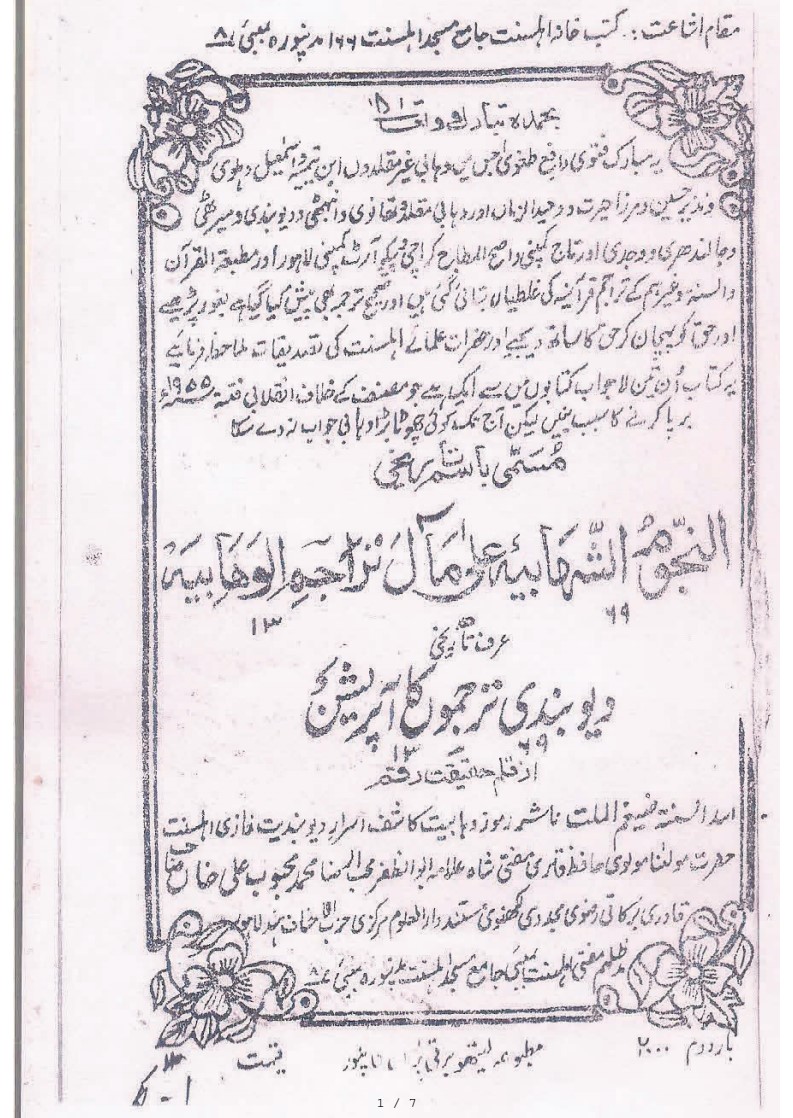 مقام اشاعت :۔ کتب خانہ اہلسنت جامع مسجد اہلسنت ۱۶۶ مدنپورہ بمبئی ۸
بحمدہ تبارک و
یہ مبارک فتویٰ دافع طغویٰ جس میں وہابی غیر مقلدوں ابن تیمیہ و اسمٰعیل دہلوی
و نذیر حسین و مرزا حیرت و وحید الزماں اور وہابی مقلد و تھانوی و انبہٹی و دیوبندی و میرٹھی
و جالندھری و وجدی اور تاج کمپنی و اصح المطابع کراچی و آرٹ کمپنی لاہور اور مطبعۃ القرآن
والسنۃ وغیرہم کے تراجم قرآنیہ کی غلطیاں بتائی گئی ہیں اور صحیح ترجمہ بھی پیش کیا گیا ہے بغور پڑھیے
اور حق کو پہچان کر حق کا ساتھ دیجیے اور حضرات علمائے اہلسنت کی تصدیقات ملاحظہ فرمائیے
یہ کتاب اُن تین لاجواب کتابوں میں سے ایک ہے جو مصنف کے خلاف انقلابی فتنہ ۱۹۵۵ء
برپا کرنے کا سبب بنیں لیکن آج تک کوئی چھوٹا بڑا وہابی جواب نہ دے سکا
مُسَمّٰی باسم تاریخی
النجومُ الشّهابیه علیٰ مآل تراجم الوهابیه
۱۳ ۶۹
عرف تاریخی
دیوبندی ترجموں کا آپریشن
۱۳ ۶۹
از قلم حقیقت رقم
اسد السنۃ ضیغم الملت ناشر رموز وہابیت کاشف اسرار دیوبندیت غازی اہلسنت
حضرت مولٰنا مولوی حافظ قاری مفتی شاہ علامہ ابوالظفر محب الرضا محمد محبوب علی خاں
قادری برکاتی رضوی مجددی لکھنوی سند دارالعلوم مرکزی حزب الاحناف ہند لاہور
مدظلہم مفتی اہلسنت بمبئی جامع مسجد اہلسنت مدنپورہ بمبئی ۸
بار دوم ۲۰۰۰ مطبوعہ لیتھو برقی پریس کانپور قیمت
1 / 7